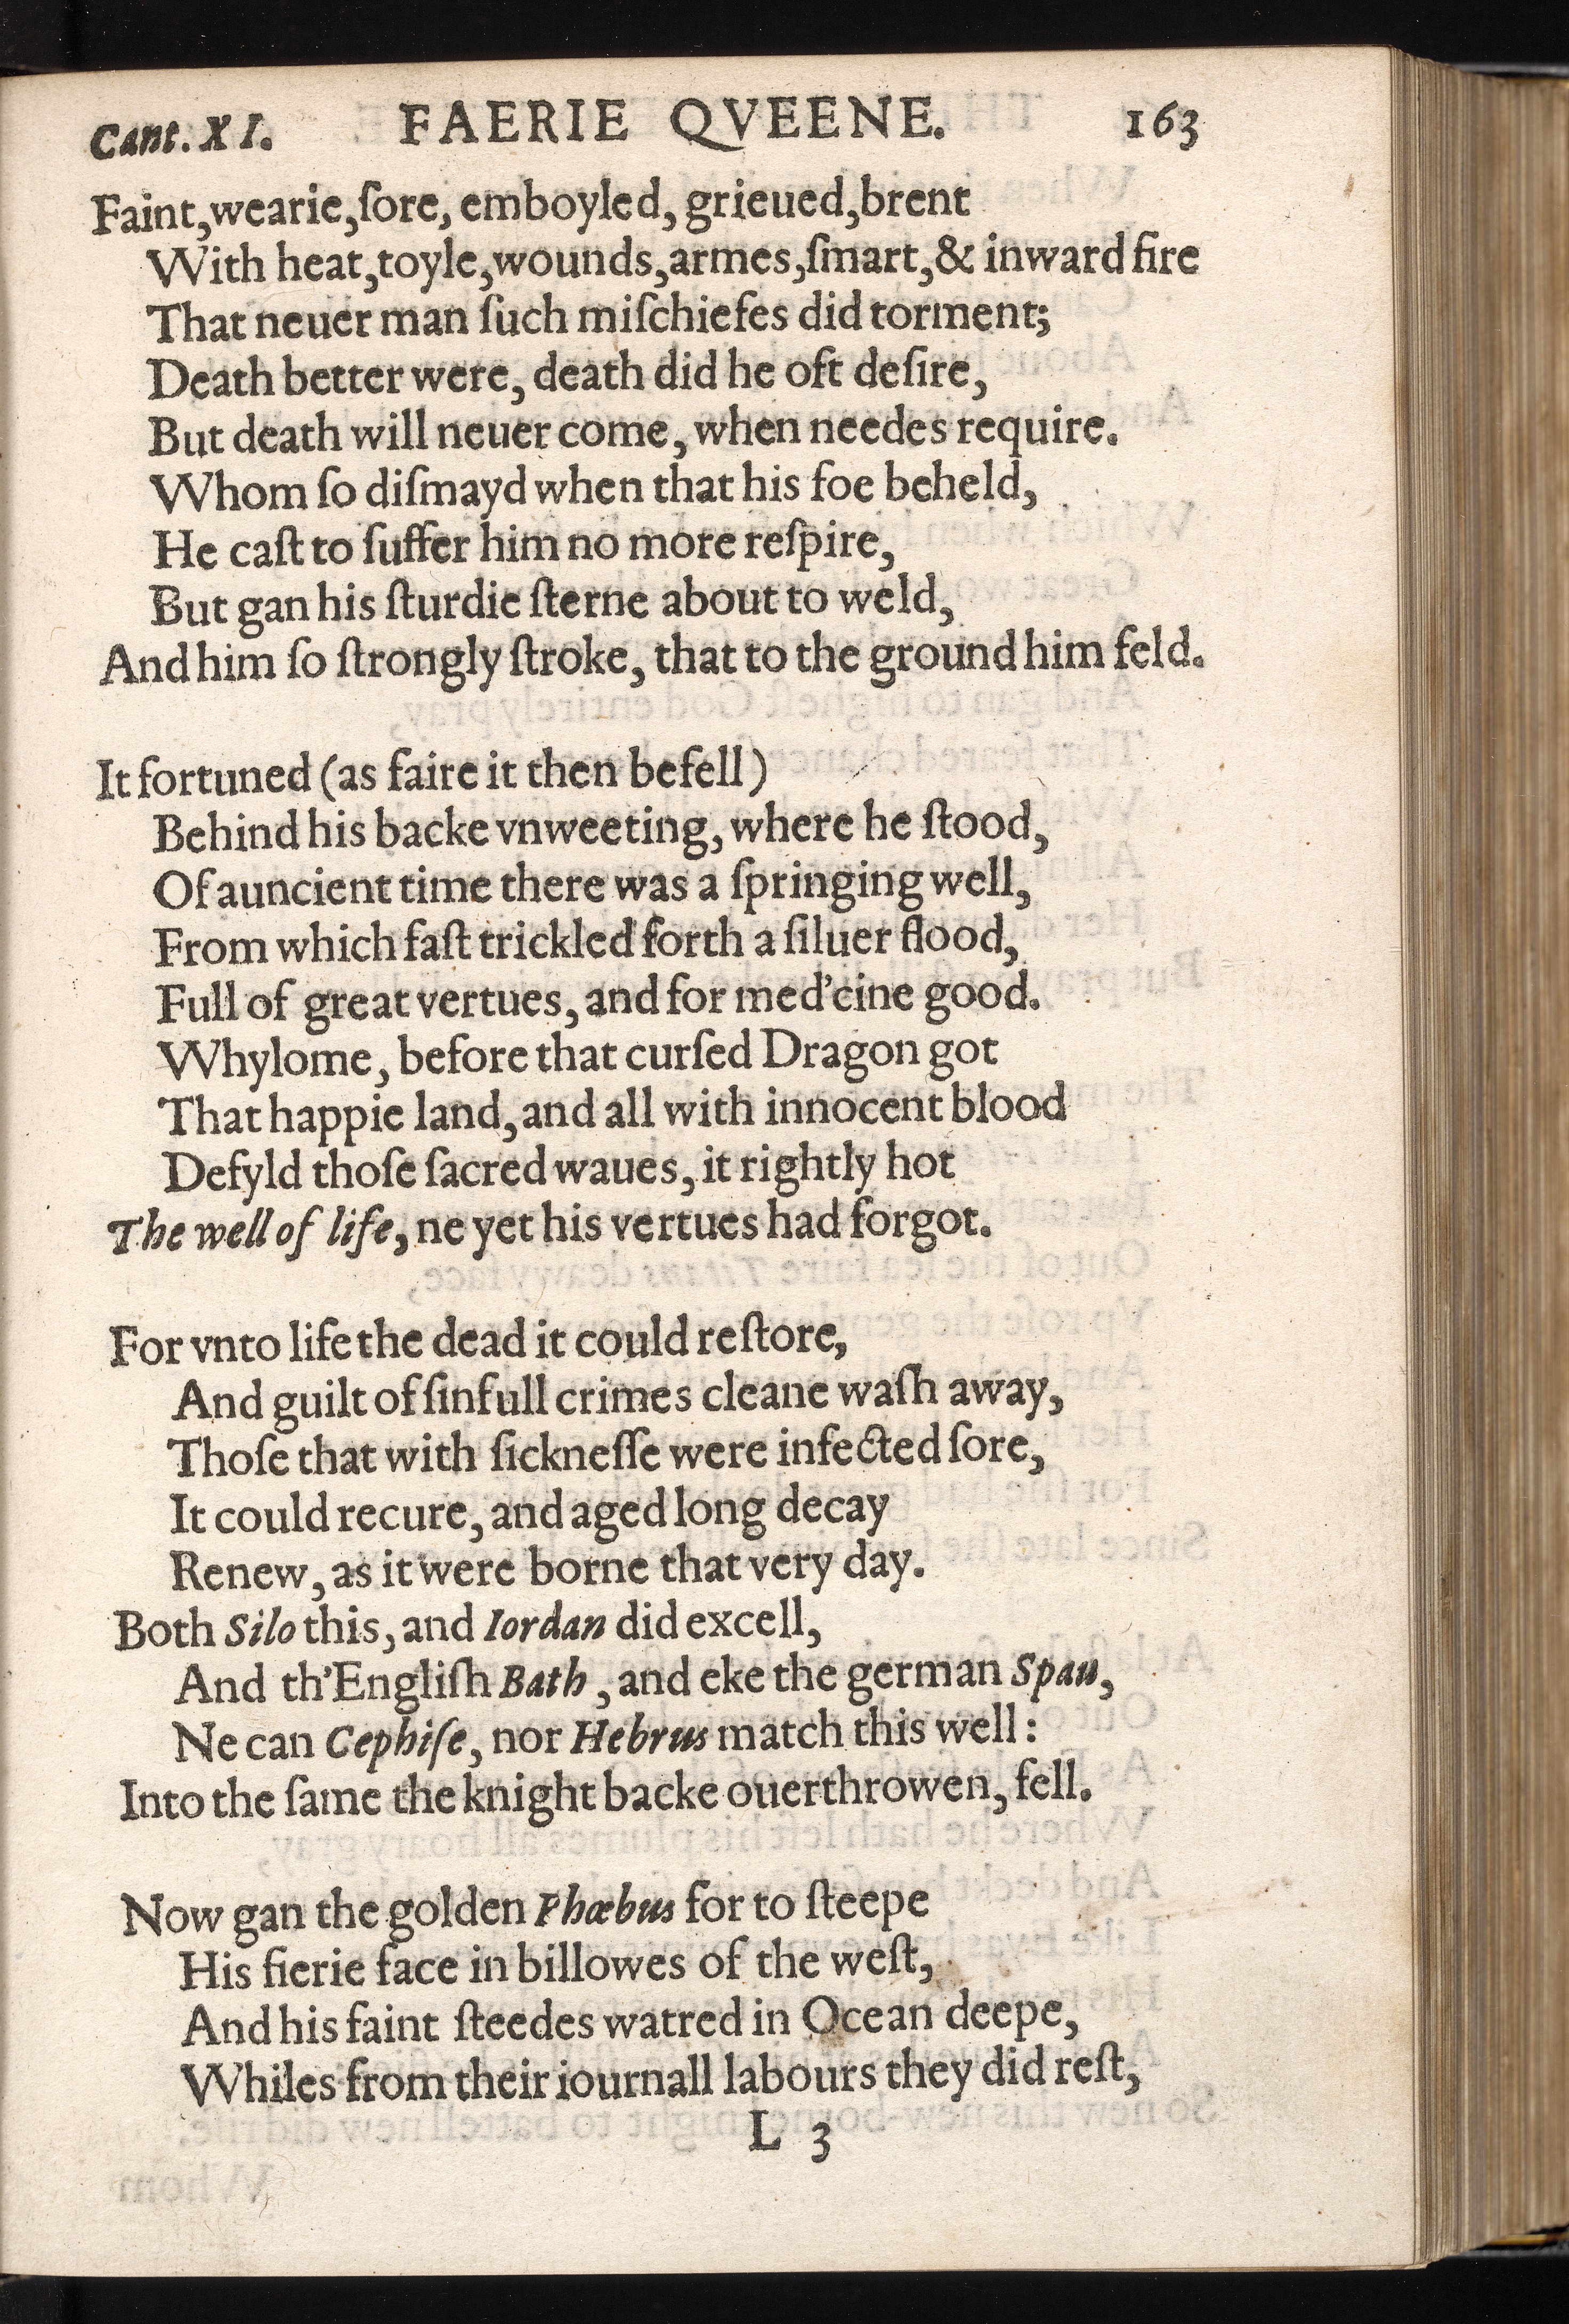 Cant. XI. FAERIE QVEENE. 163
Faint,wearie,ſore, emboyled, grieued,brent
With heat,toyle,wounds,armes,ſmart,& inward fire
That neuer man ſuch miſchiefes did torment;
Death better were, death did he oft deſire,
But death will neuer come, when needes require.
Whom ſo diſmayd when that his foe beheld,
He caſt to ſuffer him no more reſpire,
But gan his ſturdie ſterne about to weld,
And him ſo ſtrongly ſtroke, that to the ground him feld.
It fortuned (as faire it then befell)
Behind his backe vnweeting, where he ſtood,
Of auncient time there was a ſpringing well,
From which faſt trickled forth a ſiluer flood,
Full of great vertues, and for med'cine good.
Whylome, before that curſed Dragon got
That happie land, and all with innocent blood
Defyld thoſe ſacred waues, it rightly hot
The well of life, ne yet his vertues had forgot.
For vnto life the dead it could reſtore,
And guilt of ſinfull crimes cleane waſh away,
Thoſe that with ſickneſſe were infected ſore,
It could recure, and aged long decay
Renew, as it were borne that very day.
Both Silo this, and Iordan did excell,
And th'Engliſh Bath , and eke the german Spau,
Ne can Cephiſe, nor Hebrus match this well:
Into the ſame the knight backe ouerthrowen, fell.
Now gan the golden Phœbus for to ſteepe
His fierie face in billowes of the weſt,
And his faint ſteedes watred in Ocean deepe,
Whiles from their iournall labours they did reſt,
L 3